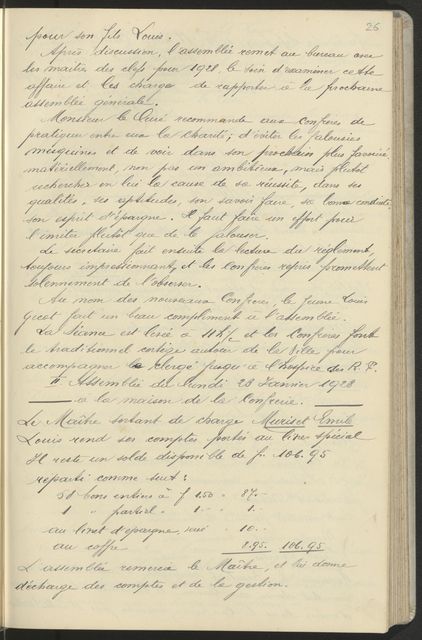 26
pour son fils Louis.
Après discussion, l'assemblée remet au bureau avec
les maîtres des clefs pour 1928, le soin d'examiner cette
affaire et les charge de rapporter à la prochaine
assemblée générale.
Monsieur le Curé recommande aux Confrères de
pratiquer entre eux la Charité; d'éviter les jalousies
mesquines et de voir dans son prochain plus favorisé
matériellement, non pas un ambitieux, mais plutôt
rechercher en lui la cause de sa réussite, dans ses
qualités, ses aptitudes, son savoir faire, sa bonne conduite,
son esprit d'épargne. Il faut faire un effort pour
l'imiter plutôt que de le jalouser.
Le secrétaire fait ensuite la lecture du règlement,
toujours impressionnant, et les Confrères reçus promettent
solennement de l'observer.
Au nom des nouveaux Confrères, le jeune Louis
Gicot fait un beau compliment à l'assemblée.
La Séance est levée à 11h½ et les Confrères font
le traditionnel cortège autour de la Ville pour
accompagner le Clergé jusqu'à l'hospice des R. P.
II Assemblée du Lundi 23 Janvier 1928
à la maison de la Confrérie.
Le Maître sortant de charge Muriset Emile
Louis rend ses comptes portés au livre spécial
Il reste un solde disponible de fr. 106.95
réparti comme suit:
58 bons entiers à f 1.50 = 87.-
1 " partiel " 1.- " 1.-
au livret d'épargne, " 10.-
au coffre 8.95. 106.95
L'assemblée remercie le Maître, et lui donne
décharge des comptes et de la gestion.